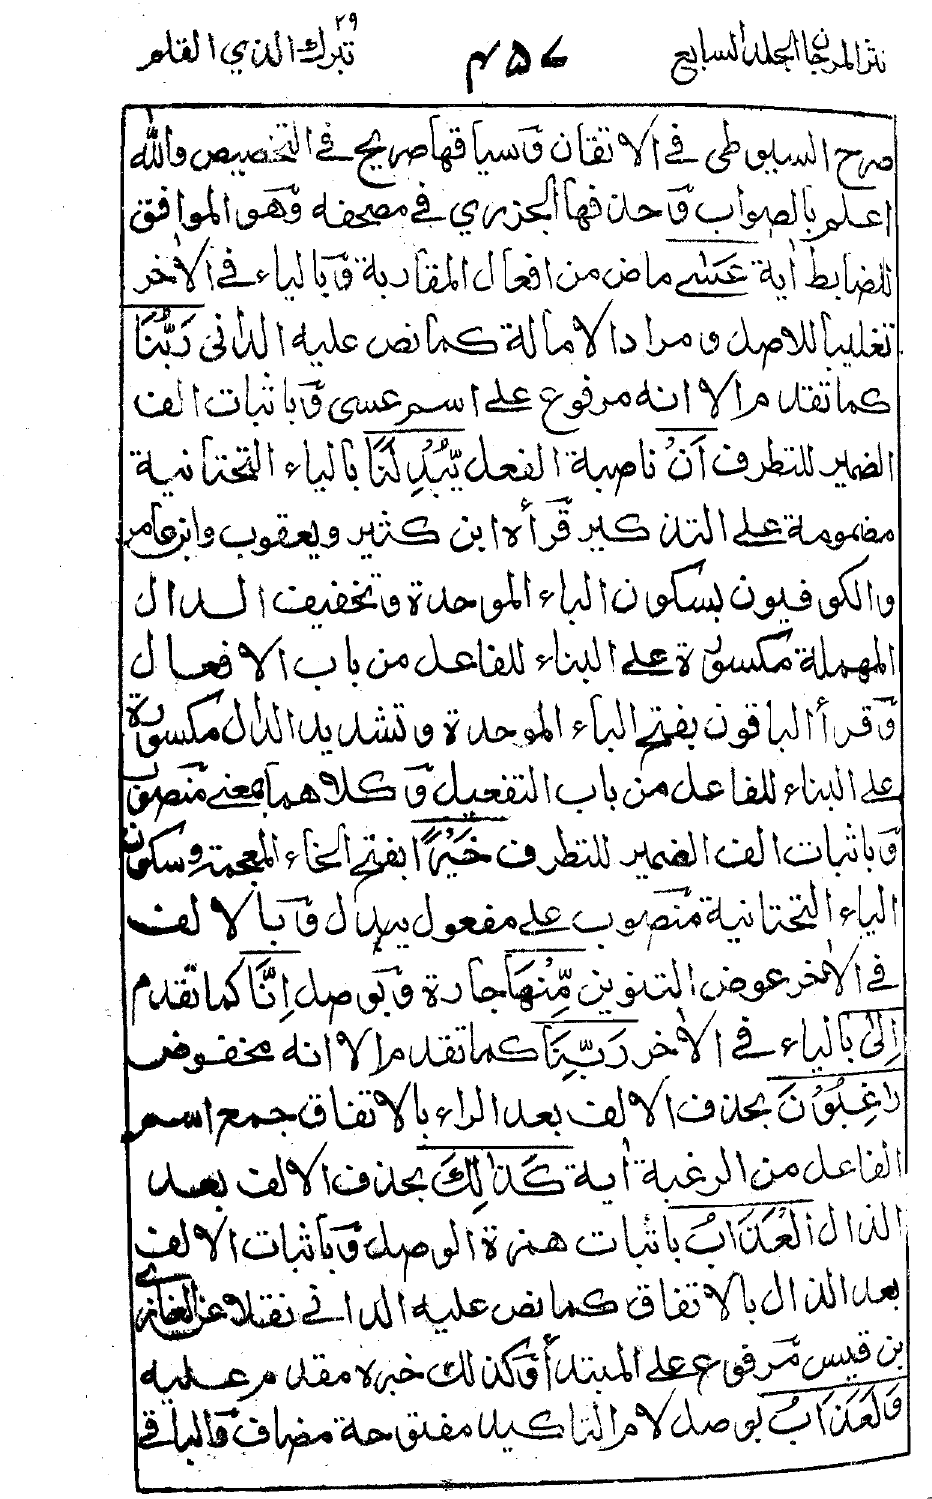 نثر المرجان الجلد السابع
٤٥٧
تبرك الذي ٢٩ القلم
صرح السيوطي في الاتقان وسياقها صريح في التخصيص والله
اعلم بالصواب وحذفها الجزري في مصحفه وهو الموافق
للضابط اٰية عَسٰى ماض من افعال المقاربة وبالياء في الاٰخر
تغليبا للاصل ومراد الامالة كما نص عليه الداني رَبُّنَا
كما تقدم الا انه مرفوع على اسم عسى وباثبات الف
الضمير للتطرف اَنْ ناصبة الفعل يُّبْدِلَنَا بالياء التحتانية
مضمومة على التذكير قرأه ابن كثير ويعقوب وابن عامر
والكوفيون بسكون الباء الموحدة وتخفيف الدال
المهملة مكسورة على البناء للفاعل من باب الافعال
وقرأ الباقون بفتح الباء الموحدة وتشديد الدال مكسورة
على البناء للفاعل من باب التفعيل وكلاهما بمعنى منصوب
وباثبات الف الضمير للتطرف خَيْرًا بفتح الخاء المعجمة وسكون
الياء التحتانية منصوب على مفعول يبدل وبالالف
في الاٰخر عوض التنوين مِّنْهَا جارة وبوصل اِنَّا كما تقدم
اِلٰى بالياء في الاٰخر رَبِّنَا كما تقدم الا انه مخفوض
رَاغِبُوْنَ بحذف الالف بعد الراء بالاتفاق جمع اسم
الفاعل من الرغبة اٰية كَذٰلِكَ بحذف الالف بعد
الذال الْعَذَابُ باثبات همزة الوصل وباثبات الالف
بعد الذال بالاتفاق كما نص عليه الداني نقلا عن الغازي
بن قيس مرفوع على المبتدأ وكذلك خبره مقدم عليه
وَلَعَذَابُ بوصل لام التاكيد مفتوحة مضاف والباقي